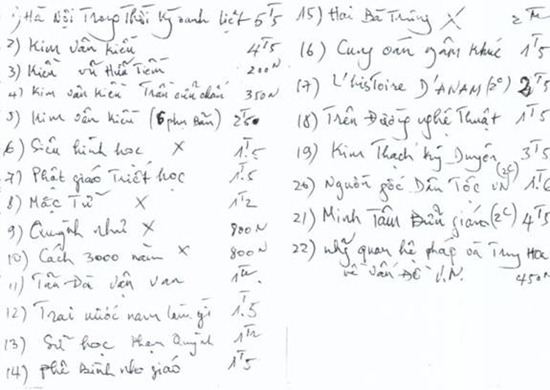 1) Hà Nội Trong Thời Kỳ oanh liệt 5T5
2) Kim Vân Kiều 4T5
3) Kiều Vũ Hữu Tiềm 200N
4) Kim Vân Kiều Trần 350N
5) Kim Vân Kiều (6 phụ bản)
6) Siêu hình học X 1T5
7) Phật giáo Triết học 1T5
8) Mặc Tử X 1T2
9) Quỳnh như X 800N
10) Cách 3000 năm X 800N
11) Tản Đà Vận Văn
12) Trai nước nam làm gì 1.5
13) Sử học Phạm Quỳnh 1T2
14) Phê bình nho giáo 1T5
15) Hai Bà Trưng X
16) Cung oán ngâm khúc 1T5
17) L'histoire D'ANAM (2C)
18) Trên Đường nghệ Thuật 1T5
19) Kim Thạch Kỳ Duyên 3T5
20) Nguồn gốc Dân Tộc VN (2C)
21) Minh Tâm (2C) 4T5
22) những quan hệ pháp và Trung Hoa
về vấn ĐỀ V.N. 450N